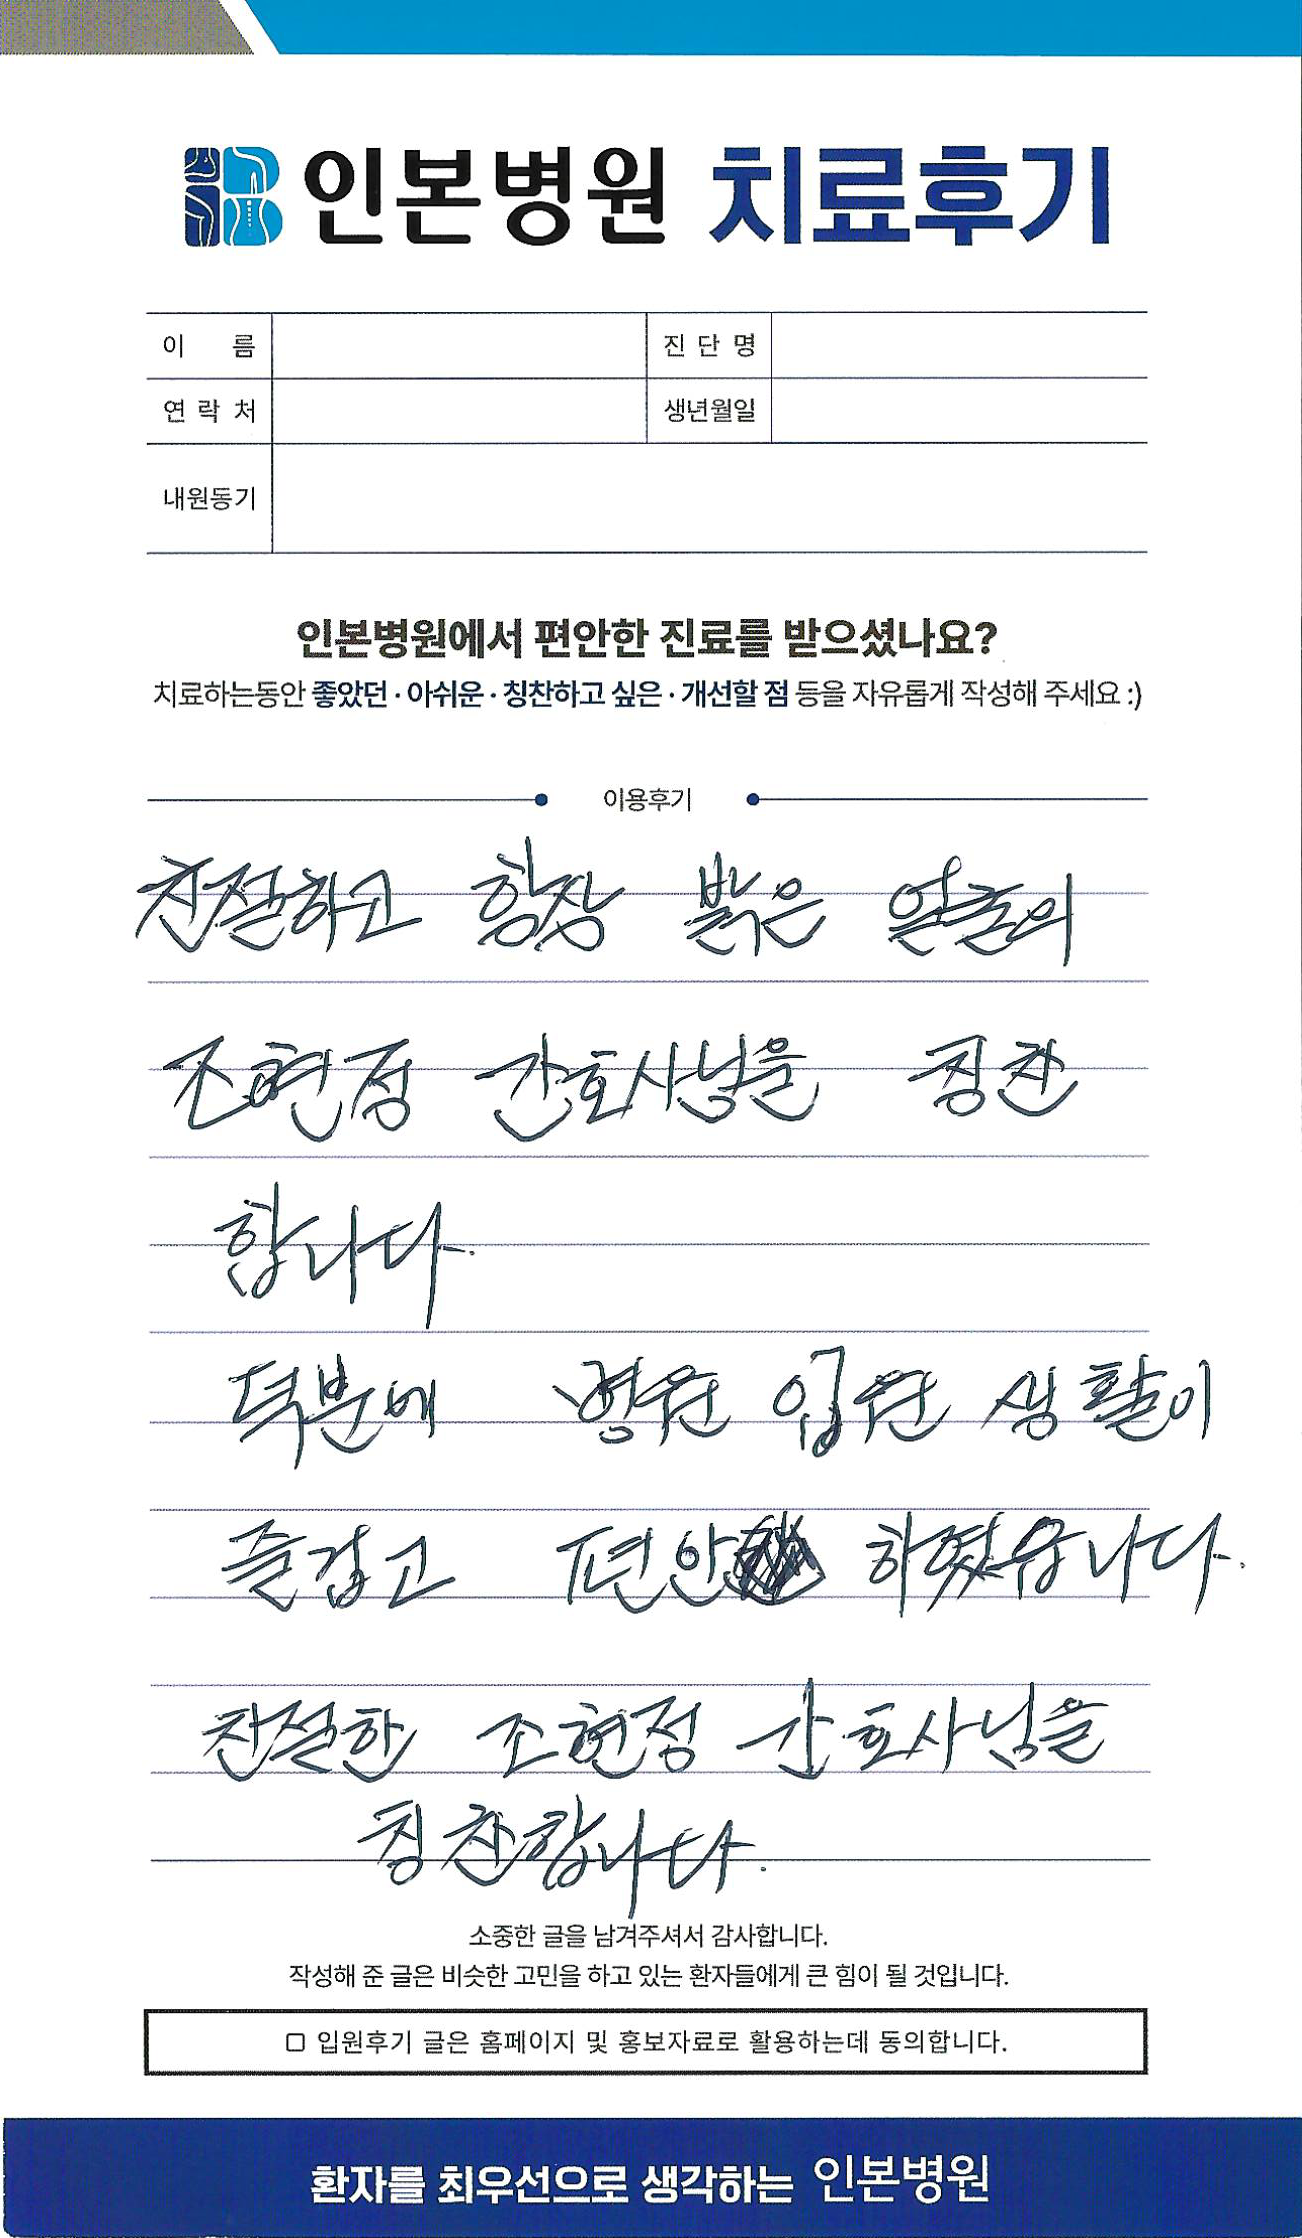 인본병원 치료후기
이 름
진 단 명
연 락 처
생년월일
내원동기
인본병원에서 편안한 진료를 받으셨나요?
치료하는동안 좋았던 · 아쉬운 · 칭찬하고 싶은 · 개선할 점 등을 자유롭게 작성해 주세요 :)
이용후기
친절하고 항상 밝은 얼굴의
조현정 간호사님을 칭찬
합니다.
덕분에 병원 입원 생활이
즐겁고 편안 하였습니다.
친절한 조현정 간호사님을
칭찬합니다.
소중한 글을 남겨주셔서 감사합니다.
작성해 준 글은 비슷한 고민을 하고 있는 환자들에게 큰 힘이 될 것입니다.
□ 입원후기 글은 홈페이지 및 홍보자료로 활용하는데 동의합니다.
환자를 최우선으로 생각하는 인본병원